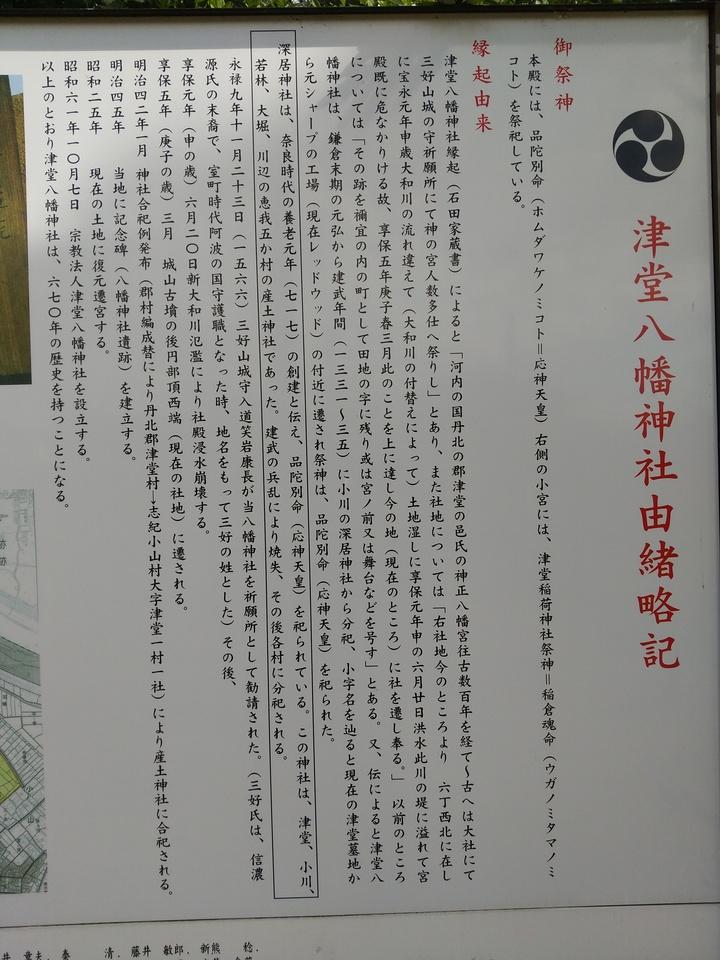 津堂八幡神社由緒略記
御祭神
本殿には、品陀別命(ホムダワケノミコト＝応神天皇)右側の小宮には、津堂稲荷神社祭神＝稲倉魂命(ウガノミタマノミ
コト)を祭祀している。
縁起由来
津堂八幡神社縁起(石田家蔵書)によると「河内の国丹北の郡津堂の邑氏の神正八幡宮往古数百年を経て〜古へは大社にて
三好山城の守祈願所にて神の宮人数多仕へ祭りし」とあり、また社地については「右社地今のところより 六丁西北に在し
に宝永元年申歳大和川の流れ違えて(大和川の付替えによって)土地湿しに享保元年申の六月廿日洪水此川の堤に溢れて宮
殿既に危なかりける故、享保五年庚子春三月此のことを上に達し今の地(現在のところ)に社を遷し奉る。」以前のところ
については「その跡を禰宜の内の町として田地の字に残り或は宮ノ前又は舞台などを号す」とある。又、伝によると津堂八
幡神社は、鎌倉末期の元弘から建武年間(一三三一〜三五)に小川の深居神社から分祀、小字名を辿ると現在の津堂墓地か
ら元シャープの工場(現在レッドウッド)の付近に遷され祭神は、品陀別命(応神天皇)を祀られた。
深居神社は、奈良時代の養老元年(七一七)の創建と伝え、品陀別命(応神天皇)を祀られている。この神社は、津堂、小川、
若林、大堀、川辺の恵我五か村の産土神社であった。建武の兵乱により焼失、その後各村に分祀される。
永禄九年十一月二十三日(一五六六)三好山城守入道笑岩康長が当八幡神社を祈願所として勧請された。(三好氏は、信濃
源氏の末裔で、室町時代阿波の国守護職となった時、地名をもって三好の姓とした)その後、
享保元年(申の歳)六月二〇日新大和川氾濫により社殿浸水崩壊する。
享保五年(庚子の歳)三月 城山古墳の後円部頂西端(現在の社地)に遷される。
明治四二年一月 神社合祀例発布(郡村編成替により丹北郡津堂村→志紀小山村大字津堂一村一社)により産土神社に合祀される。
明治四五年 当地に記念碑(八幡神社遺跡)を建立する。
昭和二五年 現在の土地に復元遷宮する。
昭和六一年一〇月七日 宗教法人津堂八幡神社を設立する。
以上のとおり津堂八幡神社は、六七〇年の歴史を持つことになる。
清、藤井 敏郎、新熊 稔、